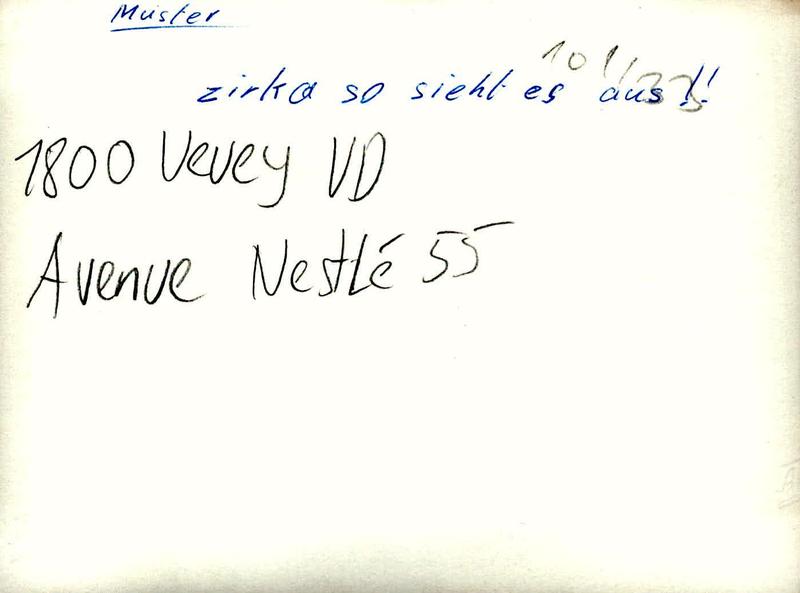 Muster
zirka so sieht es aus!!
1800 Vevey VD
Avenue Nestlé 55